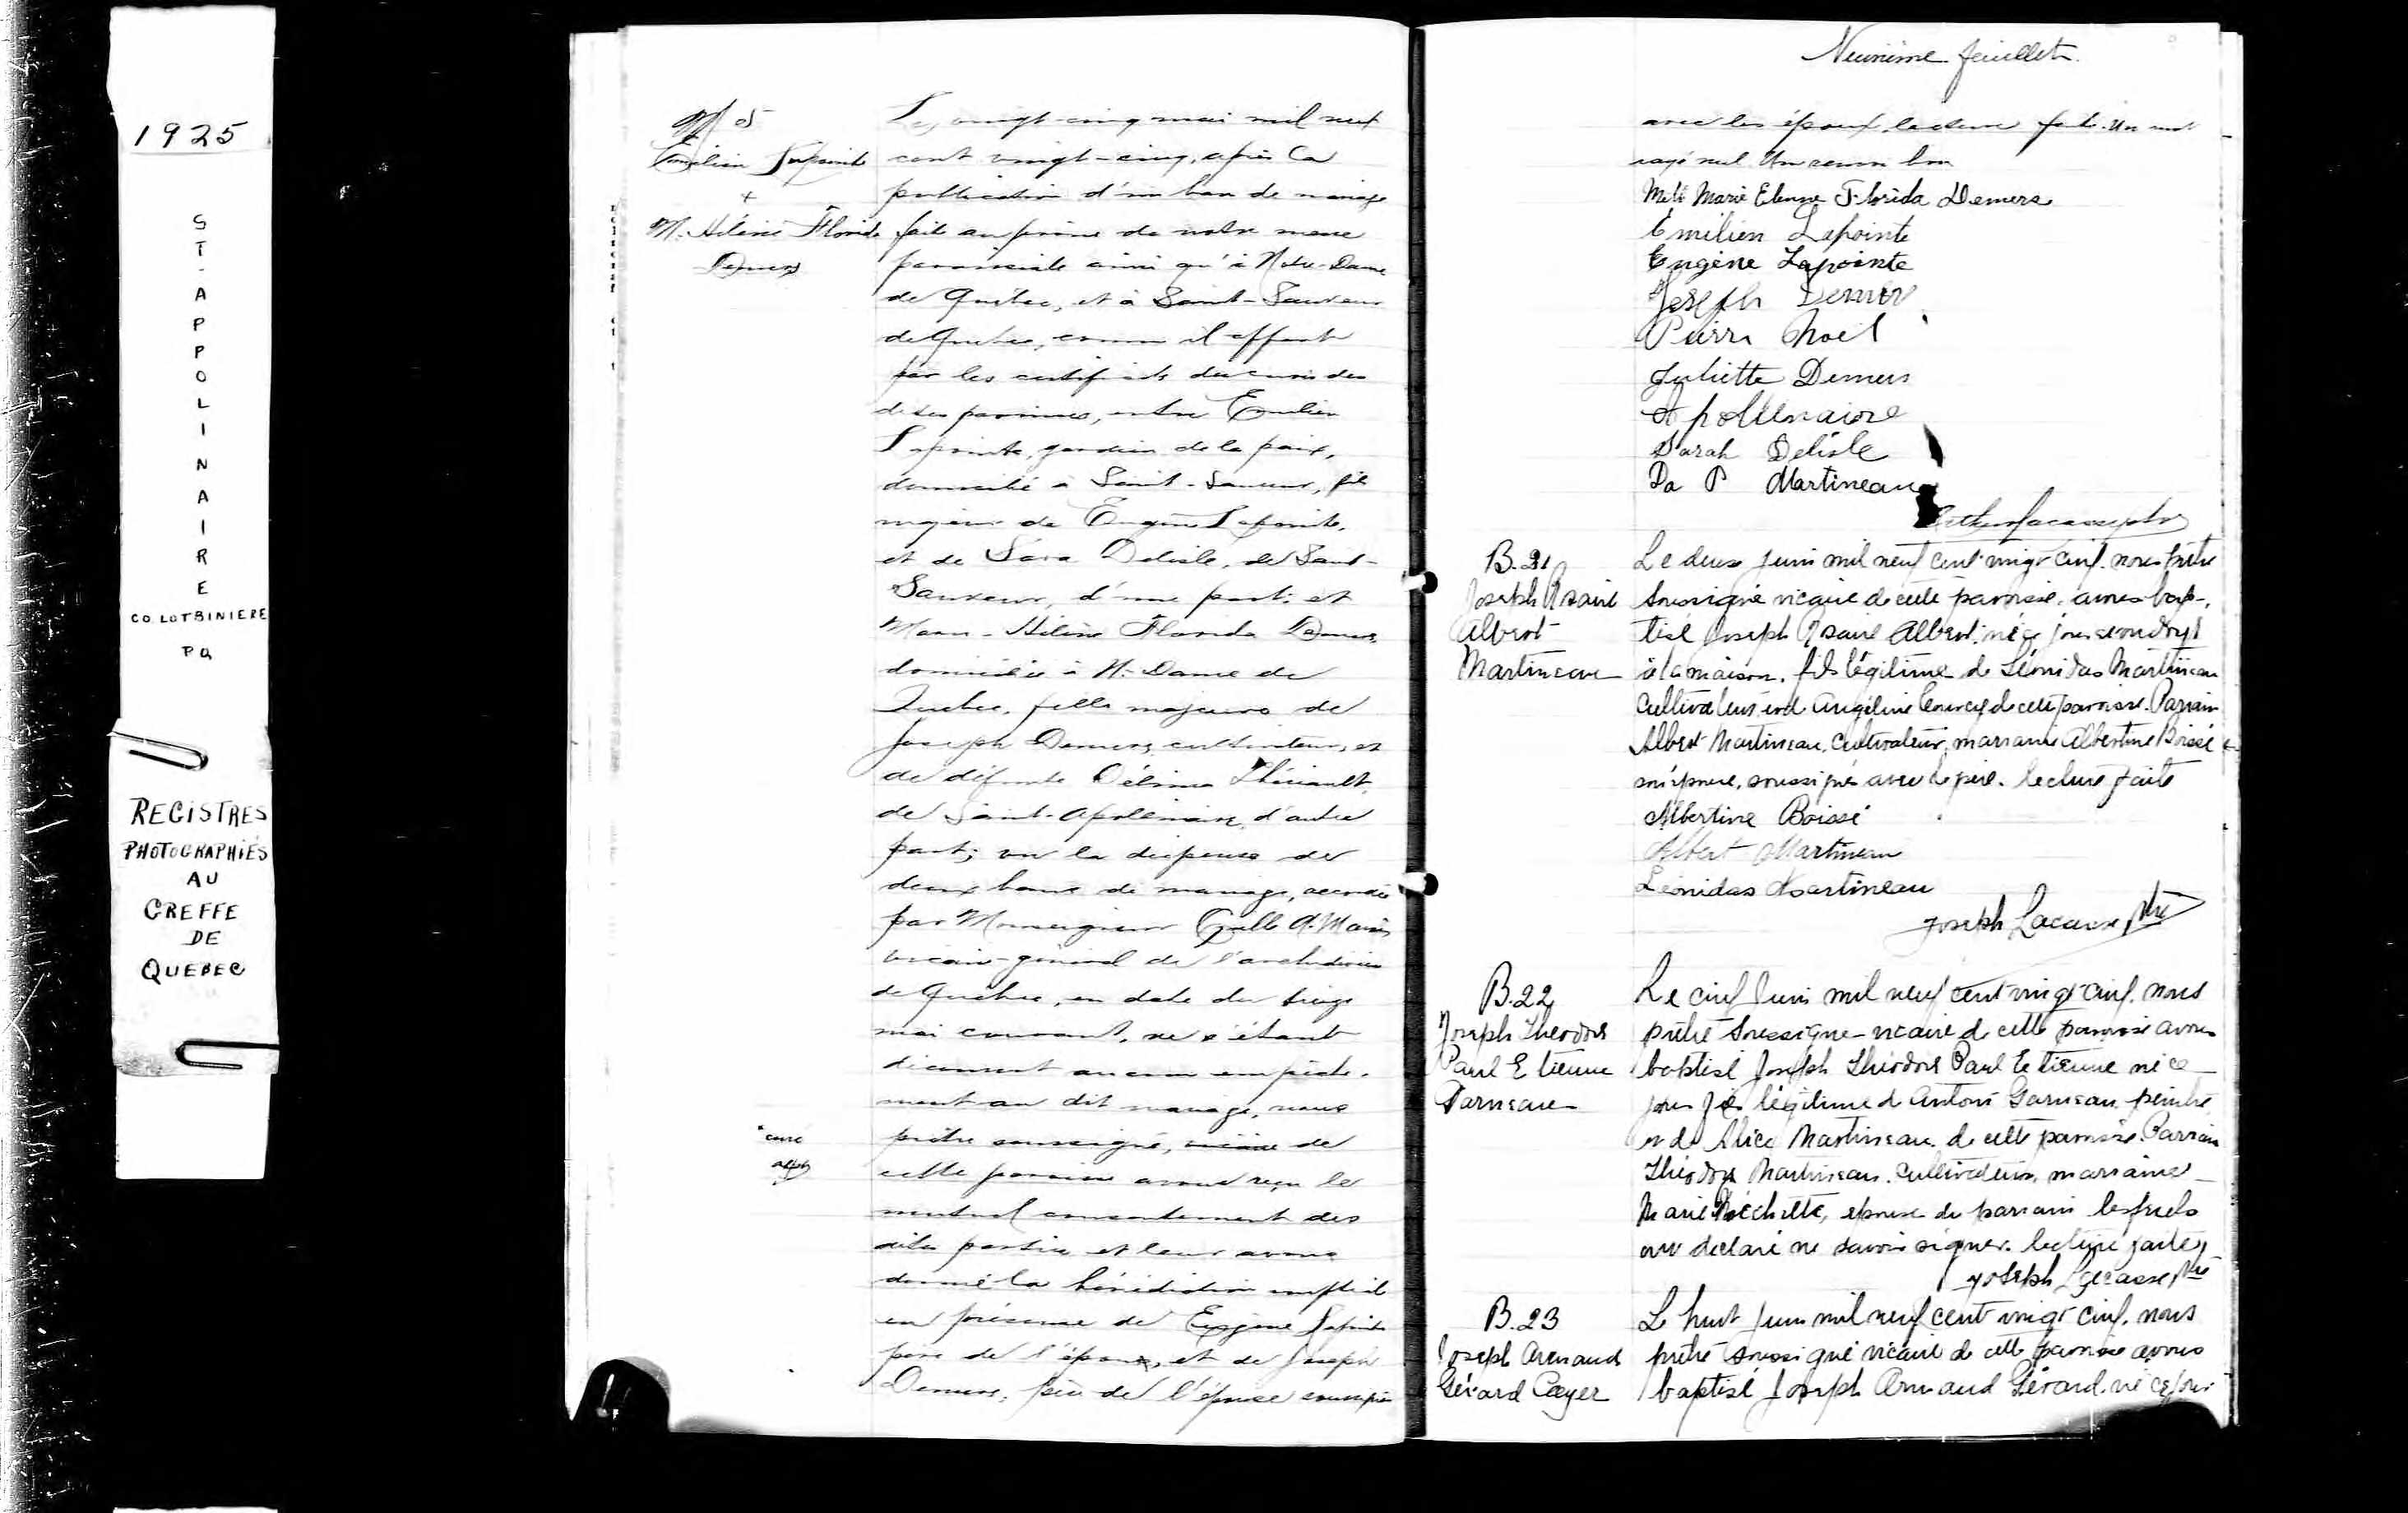 1925
ST-APPOLINAIRE
CO LOTBINIERE
PQ
REGISTRES
PHOTOGRAPHIÉS
AU
GREFFE
DE
QUEBEC
M 5
Emilien Lapointe
+
M. Hélène Florida
Demers
Le vingt-cinq mai mil neuf
cent vingt-cinq, après la
publication d'un ban de mariage
fait au prône de notre messe
paroissiale ainsi qu'à Notre-Dame
de Québec, et à Saint-Sauveur
de Québec, comme il appert
par les certificats des curés des
dites paroisses, entre Emilien
Lapointe, gardien de la paix,
domicilié à Saint-Sauveur, fils
majeur de Eugène Lapointe,
et de Sara Delisle, de Saint-
Sauveur, d'une part; et
Marie-Hélène Florida Demers,
domiciliée à N.-Dame de
Québec, fille majeure de
Joseph Demers, cultivateur, et
de défunte Délima Thériault,
de Saint-Apollinaire, d'autre
part; vu la dispense de
deux bans de mariage, accordée
par Monseigneur C. A. Marois
vicaire-général de l'archidiocèse
de Québec, en date du seize
mai courant, ne s'étant
découvert aucun empêche-
ment au dit mariage, nous
prêtre soussigné, vicaire de
cette paroisse avons reçu le
mutuel consentement des
dites parties et leur avons
donné la bénédiction nuptiale
en présence de Eugène Lapointe
père de l'époux, et de Joseph
Demers, père de l'épouse soussignés
curé
Neuvième feuillet
avec les époux, lecture faite. Un mot
rayé nul. Un renvoi bon
Melle Marie Elenne Florida Demers
Emilien Lapointe
Eugène Lapointe
Joseph Demers
Pierre Noel
Juliette Demers
Apollinaire
Sarah Delisle
Da P Martineau
Lacasse ptre
B. 21
Joseph Rosaire
Albert
Martineau
Le deux juin mil neuf cent vingt cinq. nous prêtre
soussigné vicaire de cette paroisse, avons bap-
tisé Joseph Rosaire Albert, né ce jour
à la maison, fils légitime de Léonidas Martineau
cultivateur et d'Angéline de cette paroisse. Parrain
Albert Martineau, cultivateur, marraine Albertine Boissé
son épouse, soussignés avec le père. lecture faite
Albertine Boissé
Albert Martineau
Léonidas Martineau
Joseph Lacasse ptre
B.22
Joseph Theodore
Paul Etienne
Garneau
Le cinq Juin mil neuf cent vingt cinq. nous
prêtre soussigné vicaire de cette paroisse avons
baptisé Joseph Théodore Paul Etienne né ce
jour fils légitime d'Antoni Garneau peintre
et de Alice Martineau de cette paroisse. Parrain
Théodore Martineau. cultivateur, marraine
Marie Fréchette, épouse du parrain lesquels
ont déclaré ne savoir signer. lecture faite
Joseph Lacasse ptre
B.23
Joseph Armand
Gérard Cayer
Le huit Juin mil neuf cent vingt cinq. nous
prêtre soussigné vicaire de cette paroisse avons
baptisé Joseph Armand Gérard. né ce jour